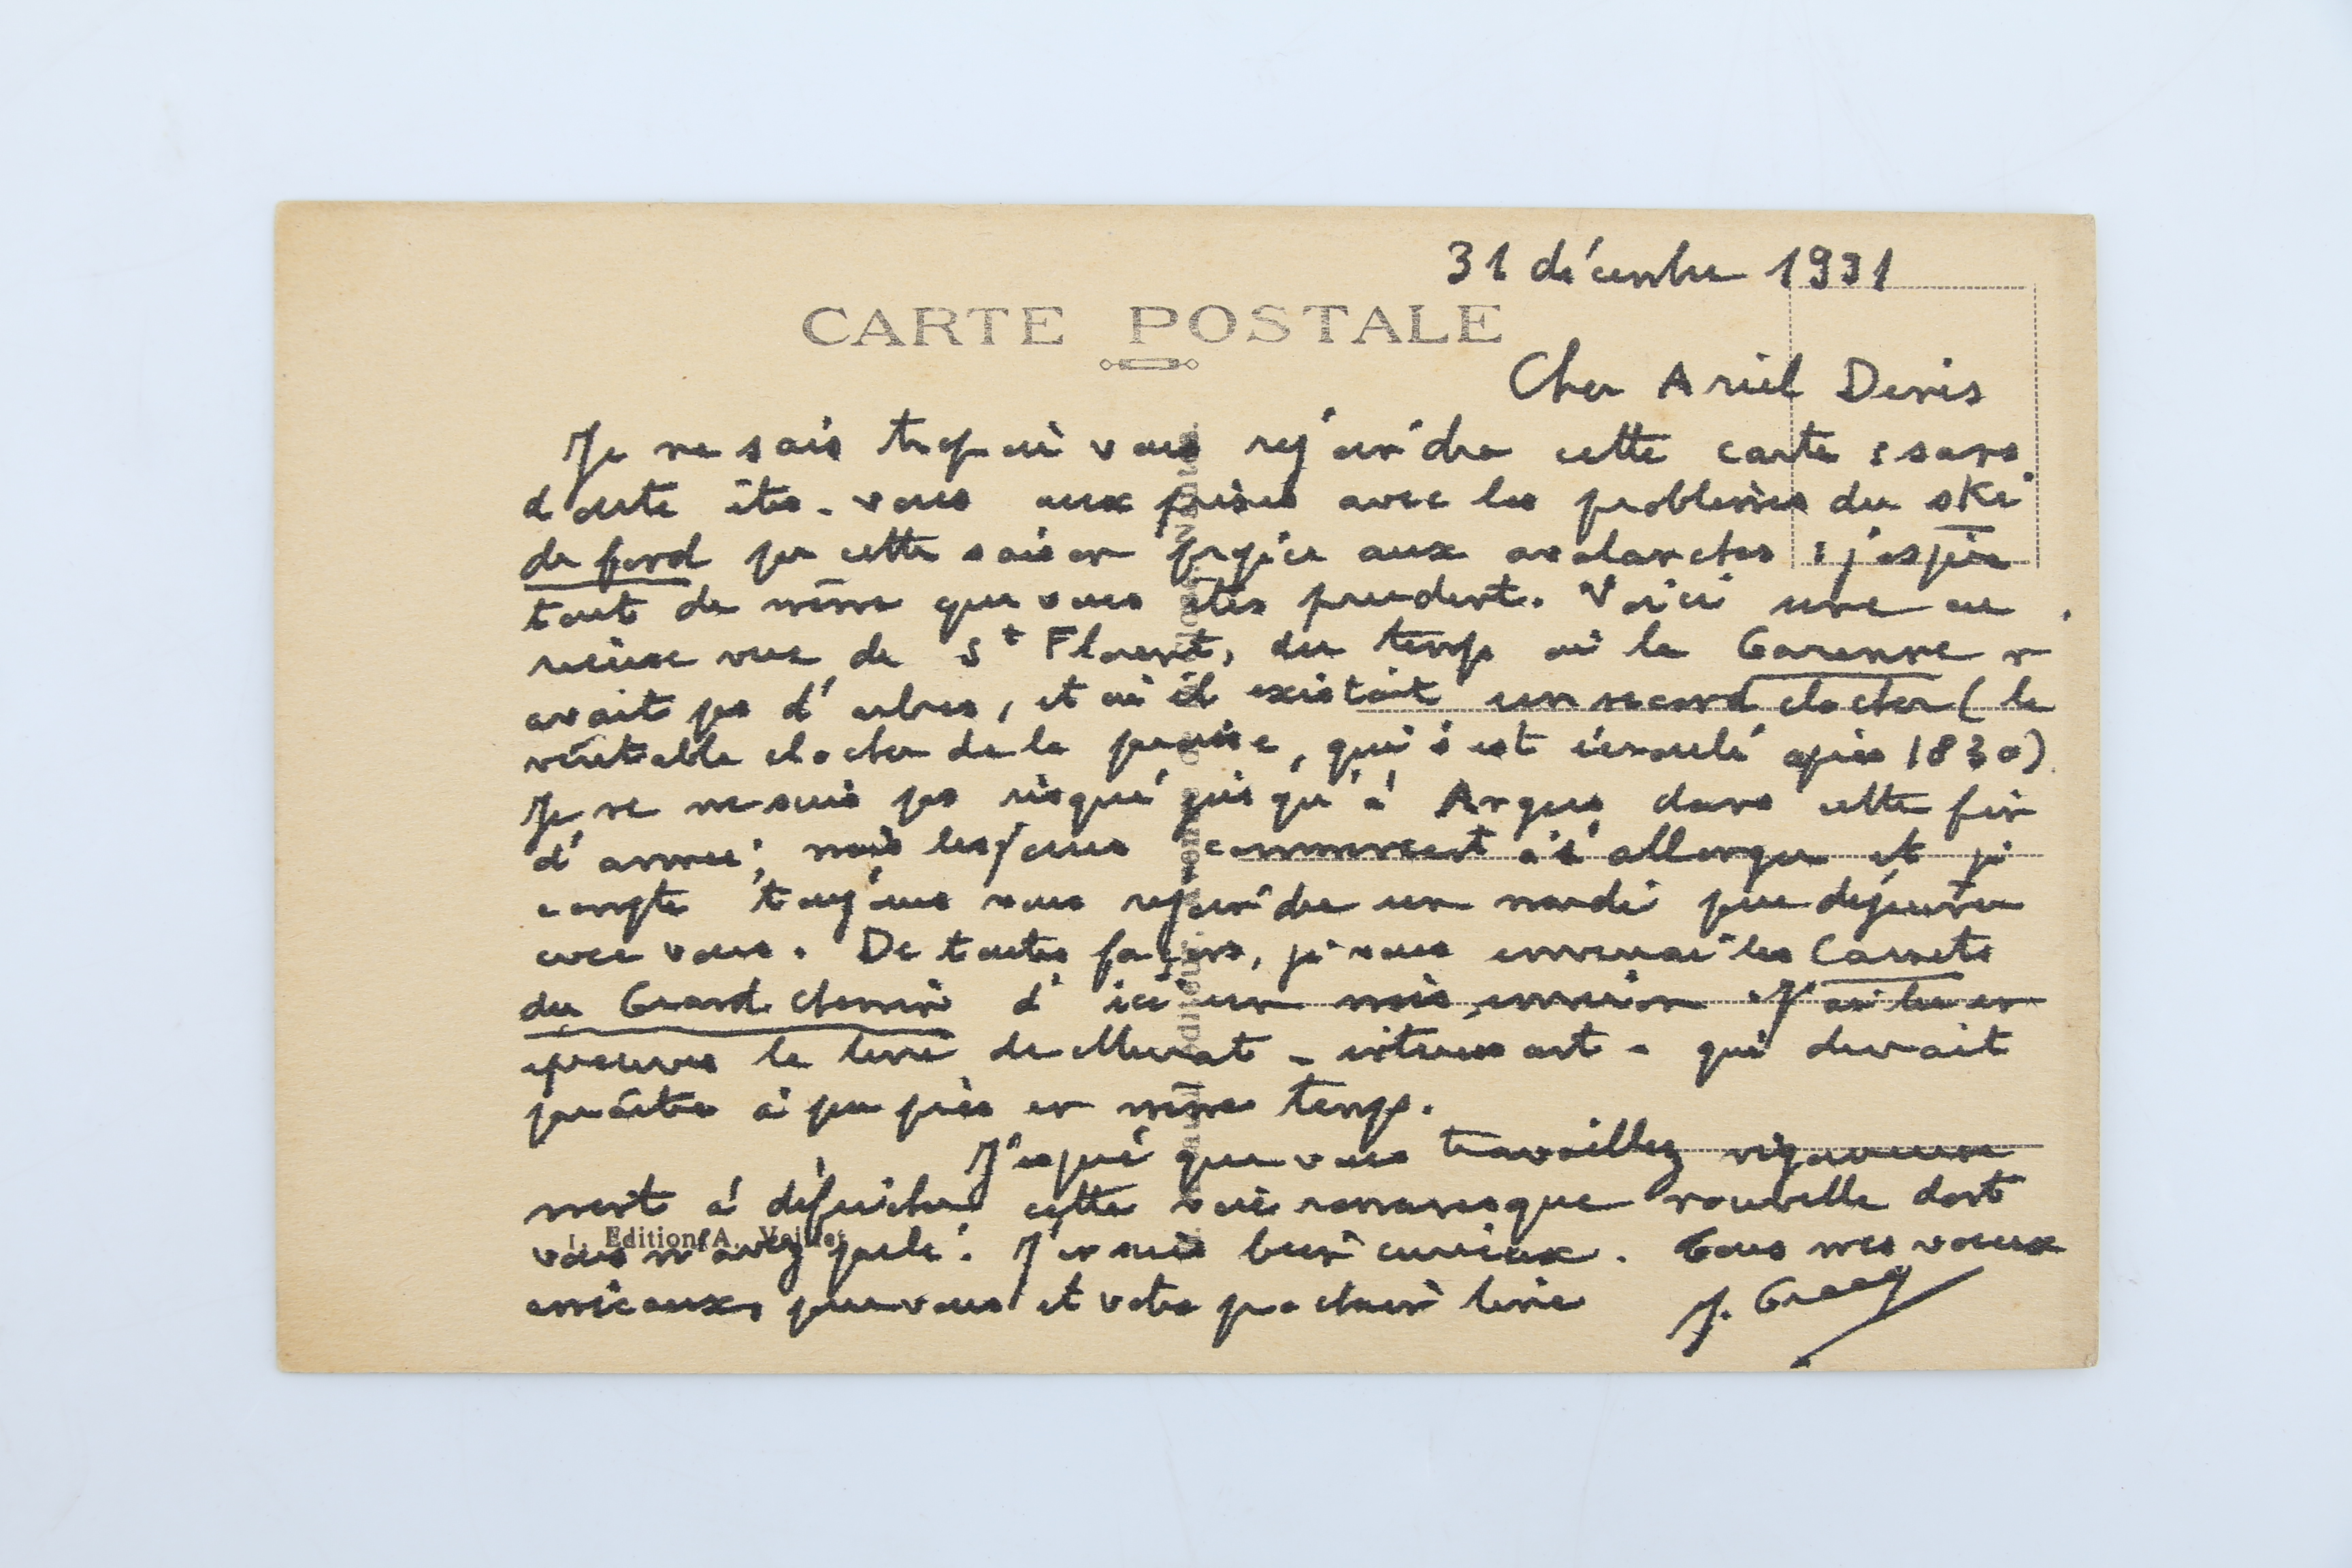 31 décembre 1991
CARTE POSTALE
Cher Ariel Denis
Je ne sais trop où vous rejoindra cette carte : sans
doute êtes-vous aux prises avec les problèmes du ski
de fond par cette saison propice aux avalanches : j'espère
tout de même que vous êtes prudent. Voici une cu
rieuse vue de St Florent, du temps où la Garenne n'
avait pas d'arbres, et où il existait un second clocher (le
véritable clocher de la paroisse, qui s'est écroulé après 1830)
Je ne me suis pas risqué jusqu'à Angers dans cette fin
d'année; mais les jours commencent à s'allonger et je
compte toujours vous rejoindre un mardi pour déjeuner
avec vous. De toutes façons, je vous enverrai les Carnets
du Grand chemin d'ici un mois environ. J'ai lu en
épreuves le livre de Murat - intéressant - qui devrait
paraître à peu près en même temps.
J'espère que vous travaillez vigoureuse
ment à défricher cette voie romanesque nouvelle dont
vous m'avez parlé. J'en suis bien curieux. Tous mes voeux
amicaux, pour vous et votre prochain livre
J. Gracq
I. Edition A.